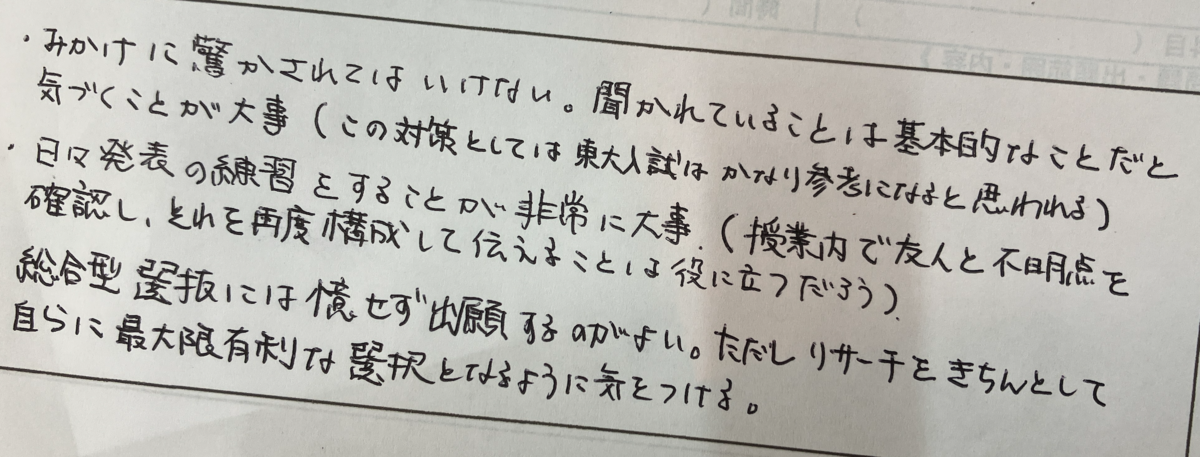 ・みかけに驚かされてはいけない。聞かれていることは基本的なことだと
気づくことが大事（この対策としては東大入試はかなり参考になると思われる）
・日々発表の練習をすることが非常に大事.（授業内で友人と不明点を
確認し、それを再度構成して伝えることは役に立つだろう）.
総合型選抜には憶せず出願するのがよい。ただしリサーチをきちんとして
自らに最大限有利な選択となるように気をつける。